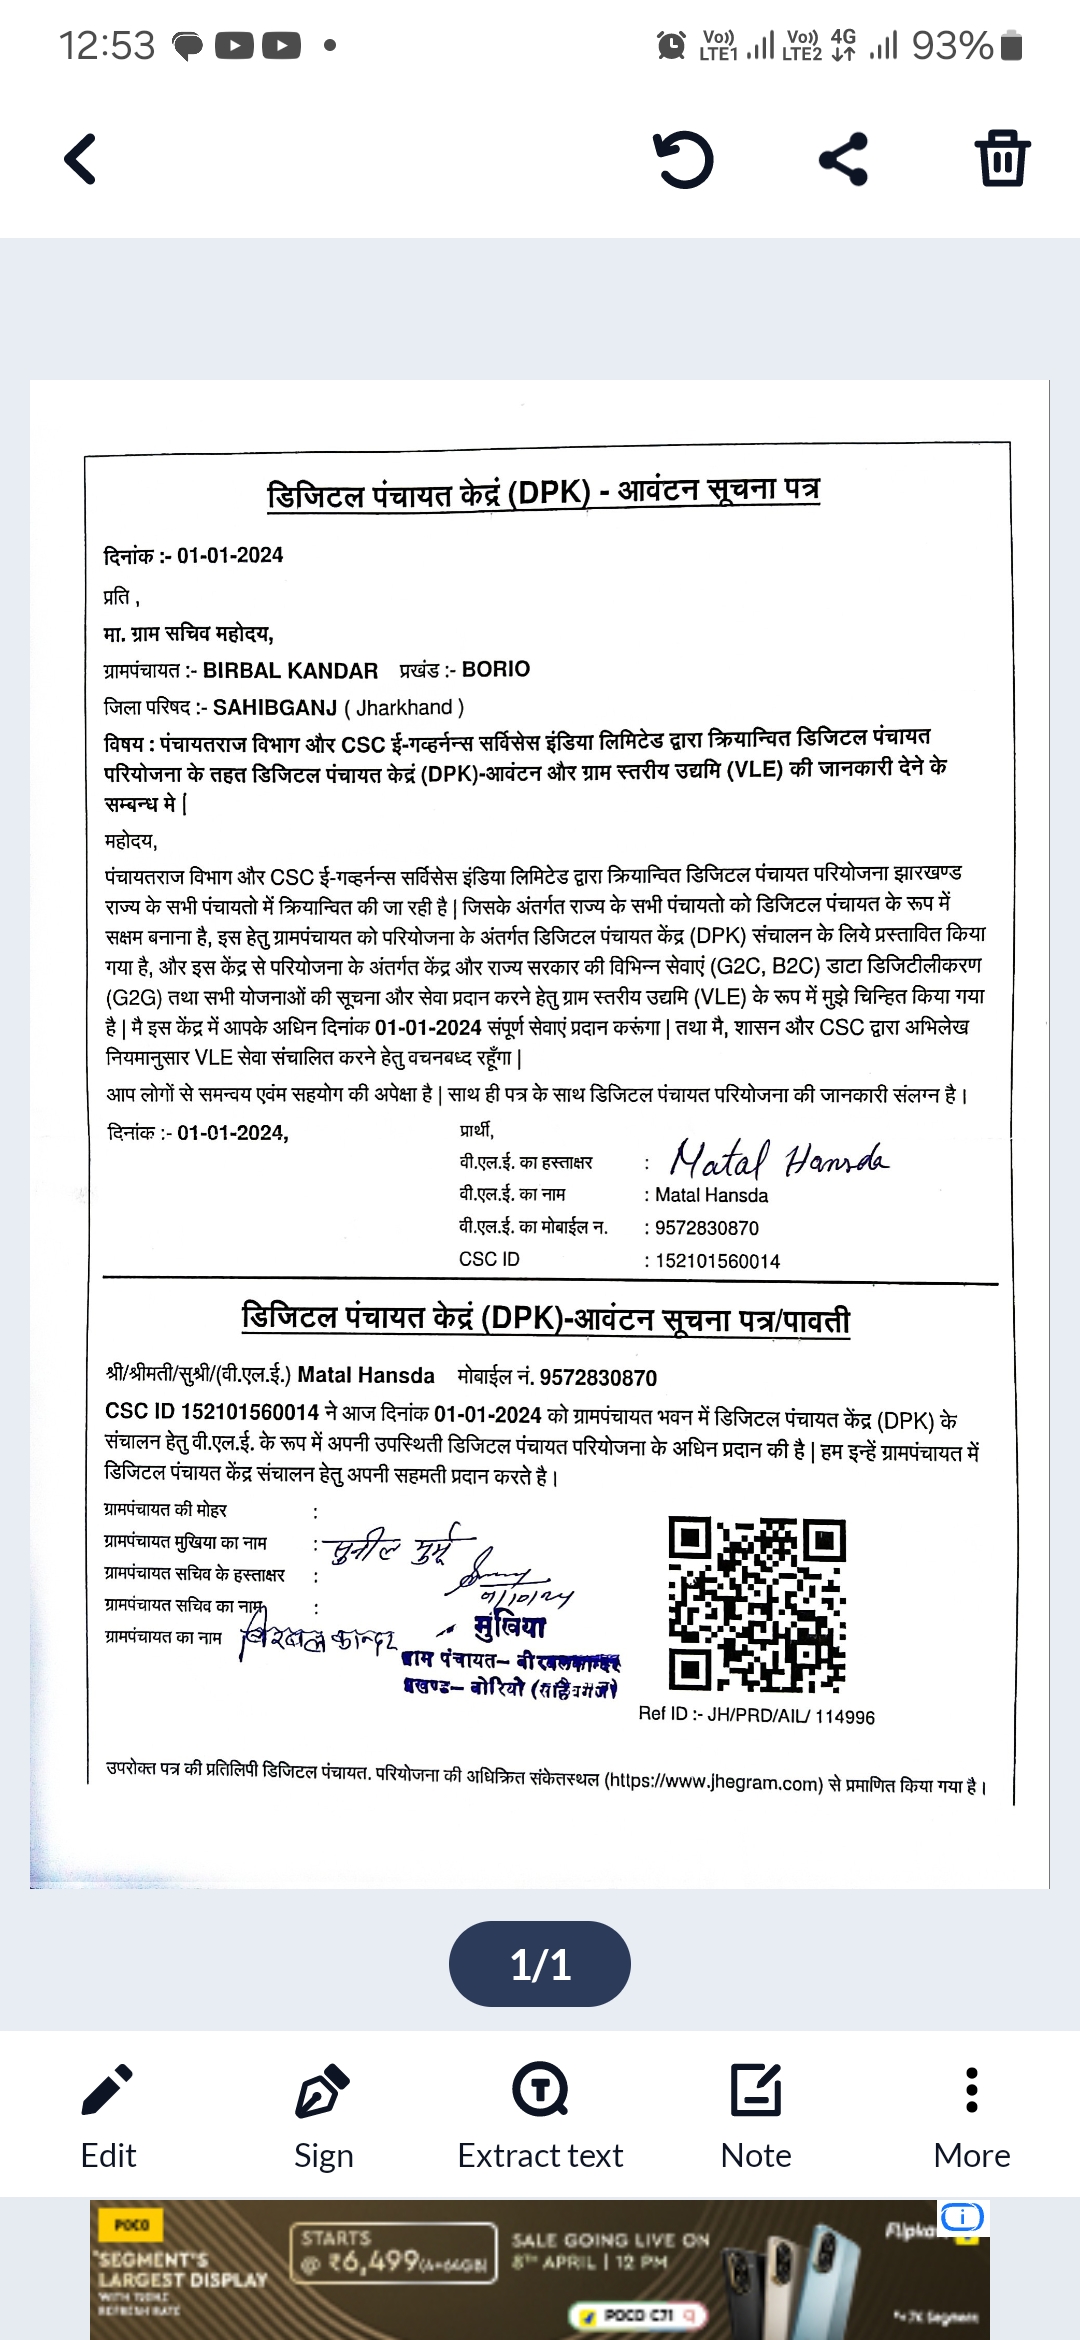 12:53
Vo)) LTE1 Vo)) LTE2 4G 93%
डिजिटल पंचायत केद्रं (DPK) - आवंटन सूचना पत्र
दिनांक :- 01-01-2024
प्रति ,
मा. ग्राम सचिव महोदय,
ग्रामपंचायत :- BIRBAL KANDAR प्रखंड :- BORIO
जिला परिषद :- SAHIBGANJ ( Jharkhand )
विषय : पंचायतराज विभाग और CSC ई-गव्हर्नन्स सर्विसेस इंडिया लिमिटेड द्वारा क्रियान्वित डिजिटल पंचायत
परियोजना के तहत डिजिटल पंचायत केद्रं (DPK)-आवंटन और ग्राम स्तरीय उद्यमि (VLE) की जानकारी देने के
सम्बन्ध मे |
महोदय,
पंचायतराज विभाग और CSC ई-गव्हर्नन्स सर्विसेस इंडिया लिमिटेड द्वारा क्रियान्वित डिजिटल पंचायत परियोजना झारखण्ड
राज्य के सभी पंचायतो में क्रियान्वित की जा रही है | जिसके अंतर्गत राज्य के सभी पंचायतो को डिजिटल पंचायत के रूप में
सक्षम बनाना है, इस हेतु ग्रामपंचायत को परियोजना के अंतर्गत डिजिटल पंचायत केंद्र (DPK) संचालन के लिये प्रस्तावित किया
गया है, और इस केंद्र से परियोजना के अंतर्गत केंद्र और राज्य सरकार की विभिन्न सेवाएं (G2C, B2C) डाटा डिजिटीलीकरण
(G2G) तथा सभी योजनाओं की सूचना और सेवा प्रदान करने हेतु ग्राम स्तरीय उद्यमि (VLE) के रूप में मुझे चिन्हित किया गया
है | मै इस केंद्र में आपके अधिन दिनांक 01-01-2024 संपूर्ण सेवाएं प्रदान करूंगा | तथा मै, शासन और CSC द्वारा अभिलेख
नियमानुसार VLE सेवा संचालित करने हेतु वचनबध्द रहूँगा |
आप लोगों से समन्वय एवंम सहयोग की अपेक्षा है | साथ ही पत्र के साथ डिजिटल पंचायत परियोजना की जानकारी संलग्न है।
दिनांक :- 01-01-2024,
प्रार्थी,
वी.एल.ई. का हस्ताक्षर : Matal Hansda
वी.एल.ई. का नाम : Matal Hansda
वी.एल.ई. का मोबाईल न. : 9572830870
CSC ID : 152101560014
डिजिटल पंचायत केद्रं (DPK)-आवंटन सूचना पत्र/पावती
श्री/श्रीमती/सुश्री/(वी.एल.ई.) Matal Hansda मोबाईल नं. 9572830870
CSC ID 152101560014 ने आज दिनांक 01-01-2024 को ग्रामपंचायत भवन में डिजिटल पंचायत केंद्र (DPK) के
संचालन हेतु वी.एल.ई. के रूप में अपनी उपस्थिती डिजिटल पंचायत परियोजना के अधिन प्रदान की है | हम इन्हें ग्रामपंचायत में
डिजिटल पंचायत केंद्र संचालन हेतु अपनी सहमती प्रदान करते है।
ग्रामपंचायत की मोहर :
ग्रामपंचायत मुखिया का नाम : सुनील मुर्मू
ग्रामपंचायत सचिव के हस्ताक्षर :
ग्रामपंचायत सचिव का नाम :
ग्रामपंचायत का नाम बिरबल कान्दर
मुखिया
ग्राम पंचायत- बीरबलकान्दर
प्रखण्ड- बोरियो (साहिबगंज)
Ref ID :- JH/PRD/AIL/ 114996
उपरोक्त पत्र की प्रतिलिपी डिजिटल पंचायत. परियोजना की अधिक्रित संकेतस्थल (https://www.jhegram.com) से प्रमाणित किया गया है।
1/1
Edit Sign Extract text Note More
POCO
"SEGMENT'S
LARGEST DISPLAY
WITH 120HZ
REFRESH RATE
STARTS
@ ₹6,499(4+64GB)
SALE GOING LIVE ON
8TH APRIL | 12 PM
POCO C71